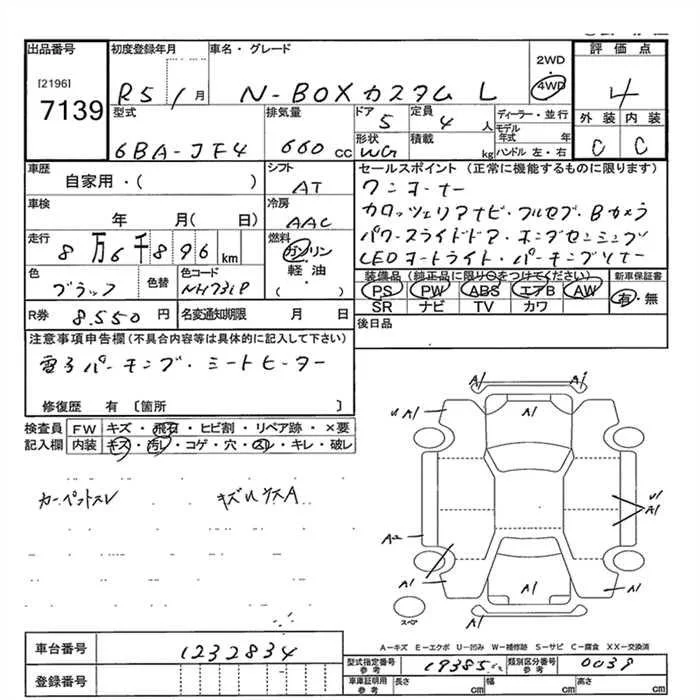 出品番号 初度登録年月 車名・グレード 2WD 評価点
[2196]
7139 R5 1月 N-BOXカスタム L 4WD 4
型式 排気量 ドア 定員 ディーラー・並行 外装 内装
6BA-JF4 660cc 5 4人 モデル年式 年 C C
形状 積載 kg ハンドル 左・右
WG
車歴 シフト セールスポイント (正常に機能するものに限ります)
自家用・( ) AT ワンオーナー
車検 冷房 カロッツェリアナビ・フルセグ・Bカメラ
年 月( 日) AAC パワースライドドア・ホンダセンシング
走行 燃料 LEDオートライト・パーキングソナー
8万6千896km ガソリン
色 色替 色コード 軽油 装備品 (純正品に限り○をつけてください) 新車保証書
ブラック NH731P ( ) PS PW ABS エアB AW 有・無
SR ナビ TV カワ
R券 8,550円 名変通知期限 月 日 後日品
注意事項申告欄(不具合内容等は具体的に記入して下さい)
電子パーキング・シートヒーター
修復歴 有 〔箇所 〕
検査員 FW キズ・飛石・ヒビ割・リペア跡・×要
記入欄 内装 キズ・汚レ・コゲ・穴・スレ・キレ・破レ
カーペットスレ
A1 A1
A1
A1
A1
A2
A1 A1 A1
スペア
A1
A-キズ E-エクボ U-凹み W-補修跡 S-サビ C-腐食 XX-交換済
車台番号 1232834
型式指定番号 参考 19385 類別区分番号 参考 0039
登録番号 車庫証明用 参考 長さ cm 幅 cm 高さ cm